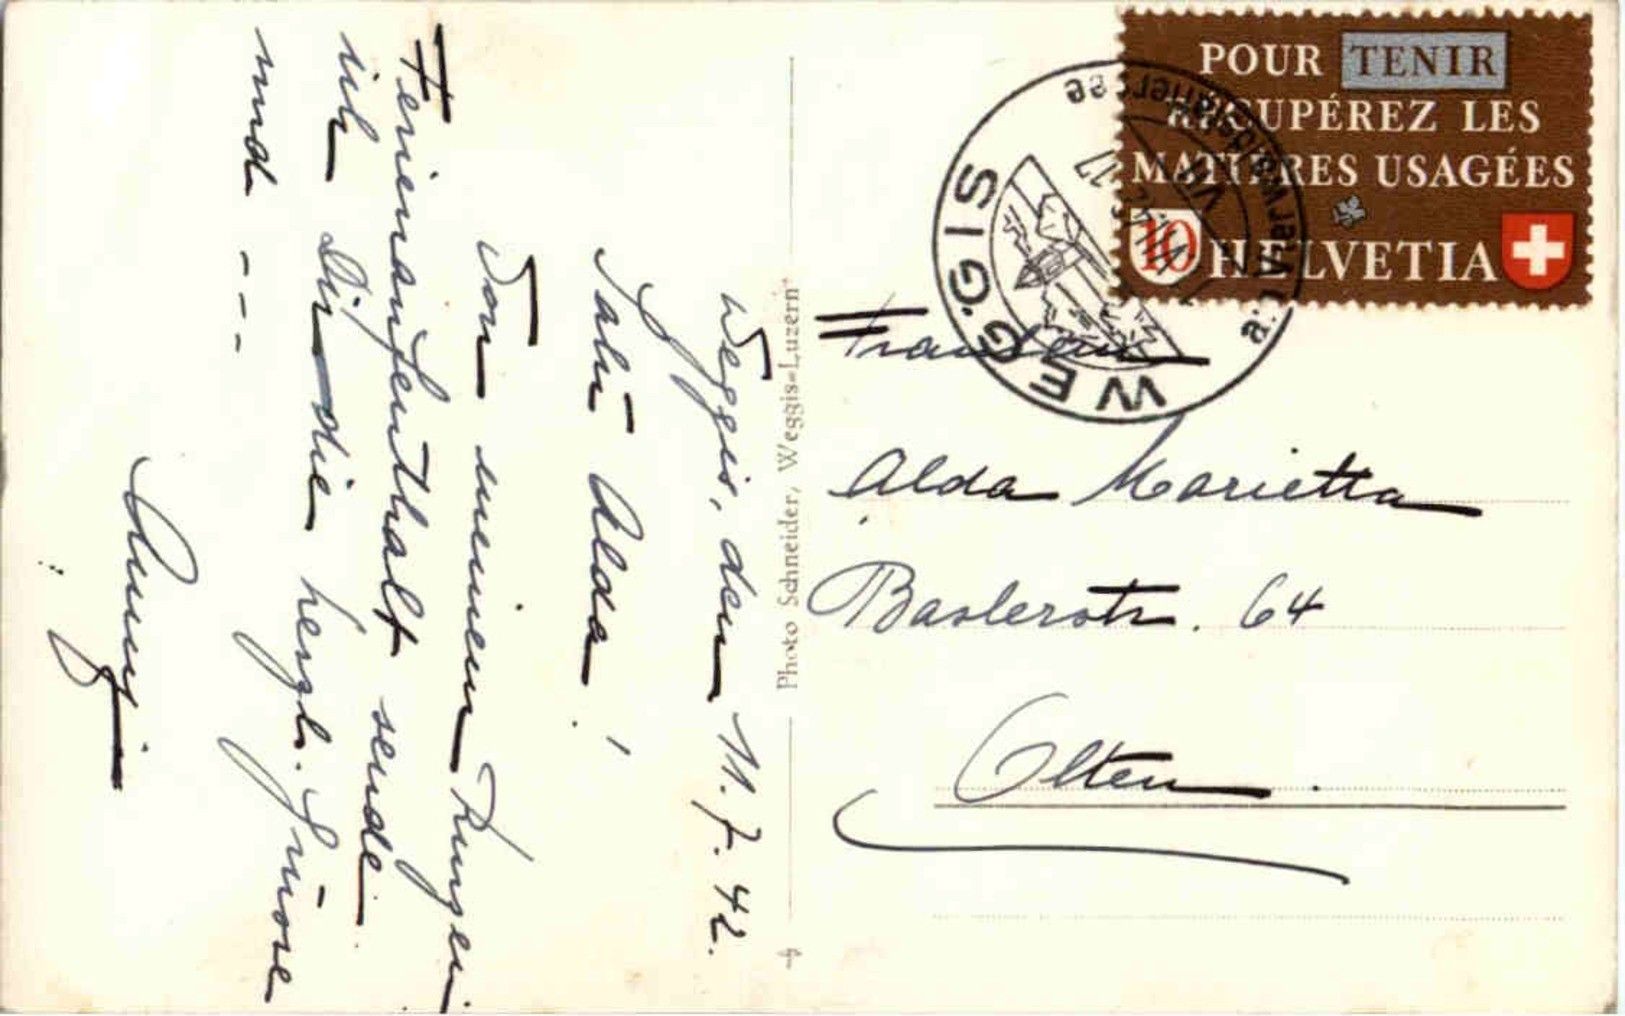 Weggis, den 11. 7. 42.
Salü Alda!
Von meinem kurzen
Ferienaufenthalt sende
ich Dir die herzl. Grüsse
und ---
Photo Schneider, Weggis-Luzern
4
POUR TENIR
RÉCUPÉREZ LES
MATIÈRES USAGÉES
10 HELVETIA
WEGGIS
a. Vierwaldstättersee
Fräulein
Alda Marietta
Baslerstr. 64
Olten.